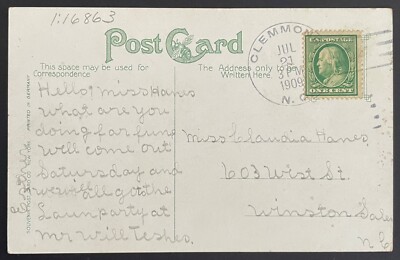 1:16863
Post Card
This space may be used for
Correspondence.
The Address only to be
Written Here.
CLEMMO
JUL
21
3 PM
1909
N. C.
U.S. POSTAGE
ONE CENT
Hello! Miss Hanes
what are you
doing for fun
will come out
Saturday and
we will all go to the
Lawn party at
Mr Will
Miss Claudia Hanes
603 West St.
Winston Salem
N C
PRINTED IN GERMANY